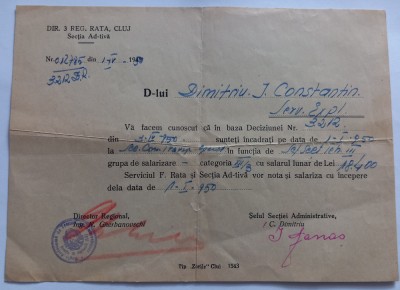 DIR. 3 REG. RATA, CLUJ
Secția Ad-tivă
Nr. din 1950
3212
D-lui Dimitriu I. Constantin
Serv. Expl.
Vă facem cunoscut că în baza Deciziunei Nr. 3212
din 3.II.950 sunteți încadrați pe data de 1-I-950
la în funcția de
grupa de salarizare — categoria cu salariul lunar de Lei 18.400
Serviciul F. Rata și Secția Ad-tivă vor nota și salariza cu începere
dela data de 1-I-950
Director Regional,
Ing. A. Gherbanovschi
Șeful Secției Administrative,
I. C. Dimitriu
Tip. „Zorile" Cluj